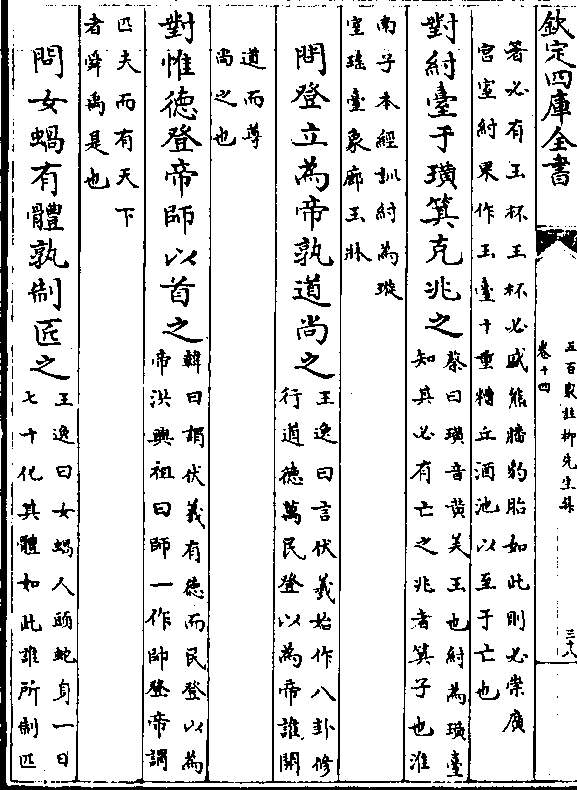 欽定四庫全書
五百家註柳先生集
卷十四
三十八
著必有玉杯玉杯必盛熊蹯豹胎如此則必崇廣
宫室紂果作玉臺十重糟丘酒池以至于亡也
對紂臺于璜箕克兆之
蔡曰璜音黄美玉也紂為璜臺
知其必有亡之兆者箕子也淮
南子本經訓紂為璇
室瑶臺象廊玉牀
問登立為帝孰道尚之
王逸曰言伏羲始作八卦修
行道德萬民登以為帝誰開
道而尊
尚之也
對惟德登帝師以首之
韓曰謂伏羲有德而民登以為
帝洪興祖曰師一作帥登帝謂
匹夫而有天下
者舜禹是也
問女媧有體孰制匠之
王逸曰女媧人頭蛇身一日
七十化其體如此誰所制匠